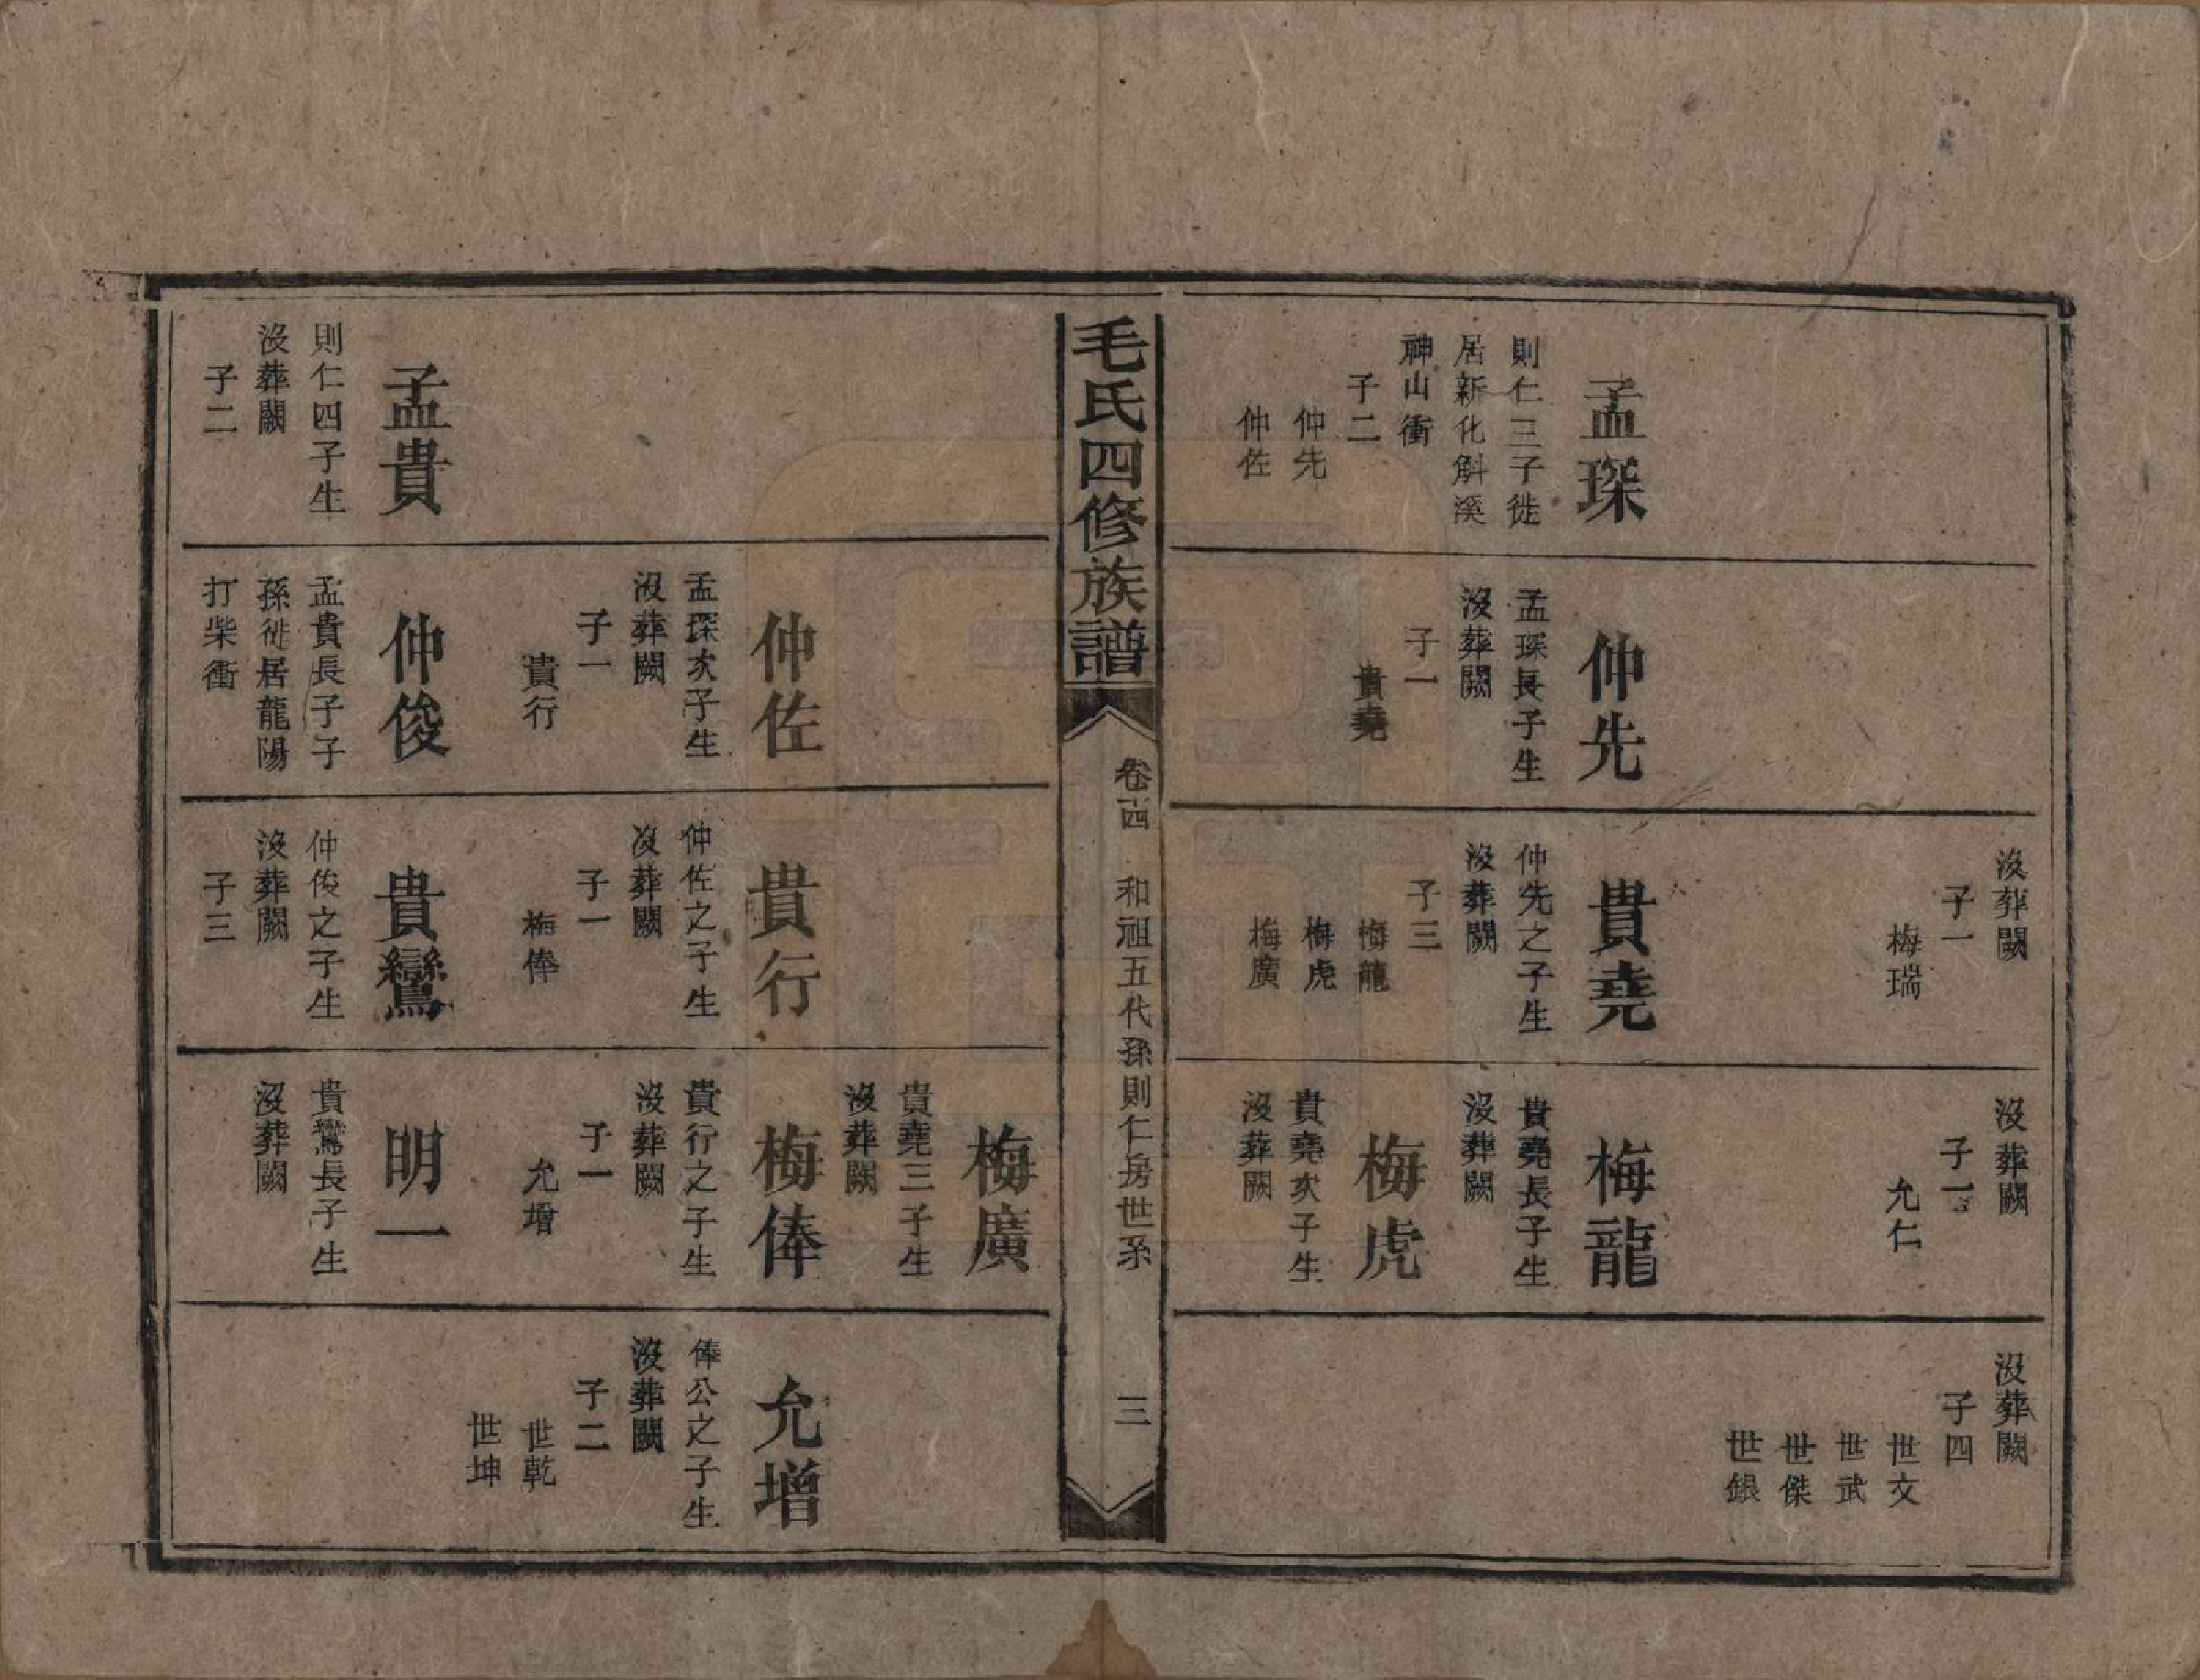 孟琛
則仁三子徙
居新化斛溪
神山衝
子二
仲先
仲佐
仲先
孟琛長子生
沒葬闕
子一
貴堯
沒葬闕
子一
梅瑞
貴堯
仲先之子生
沒葬闕
子三
梅龍
梅虎
梅廣
沒葬闕
子一
允仁
梅龍
貴堯長子生
沒葬闕
梅虎
貴堯次子生
沒葬闕
沒葬闕
子四
世文
世武
世傑
世銀
毛氏四修族譜
卷十四
和祖五代孫則仁房世系
三
孟貴
則仁四子生
沒葬闕
子二
仲佐
孟琛次子生
沒葬闕
子一
貴行
仲俊
孟貴長子子
孫徙居龍陽
打柴衝
貴行
仲佐之子生
沒葬闕
子一
梅俸
貴鸞
仲俊之子生
沒葬闕
子三
梅廣
貴堯三子生
沒葬闕
梅俸
貴行之子生
沒葬闕
子一
允增
明一
貴鸞長子生
沒葬闕
允增
俸公之子生
沒葬闕
子二
世乾
世坤